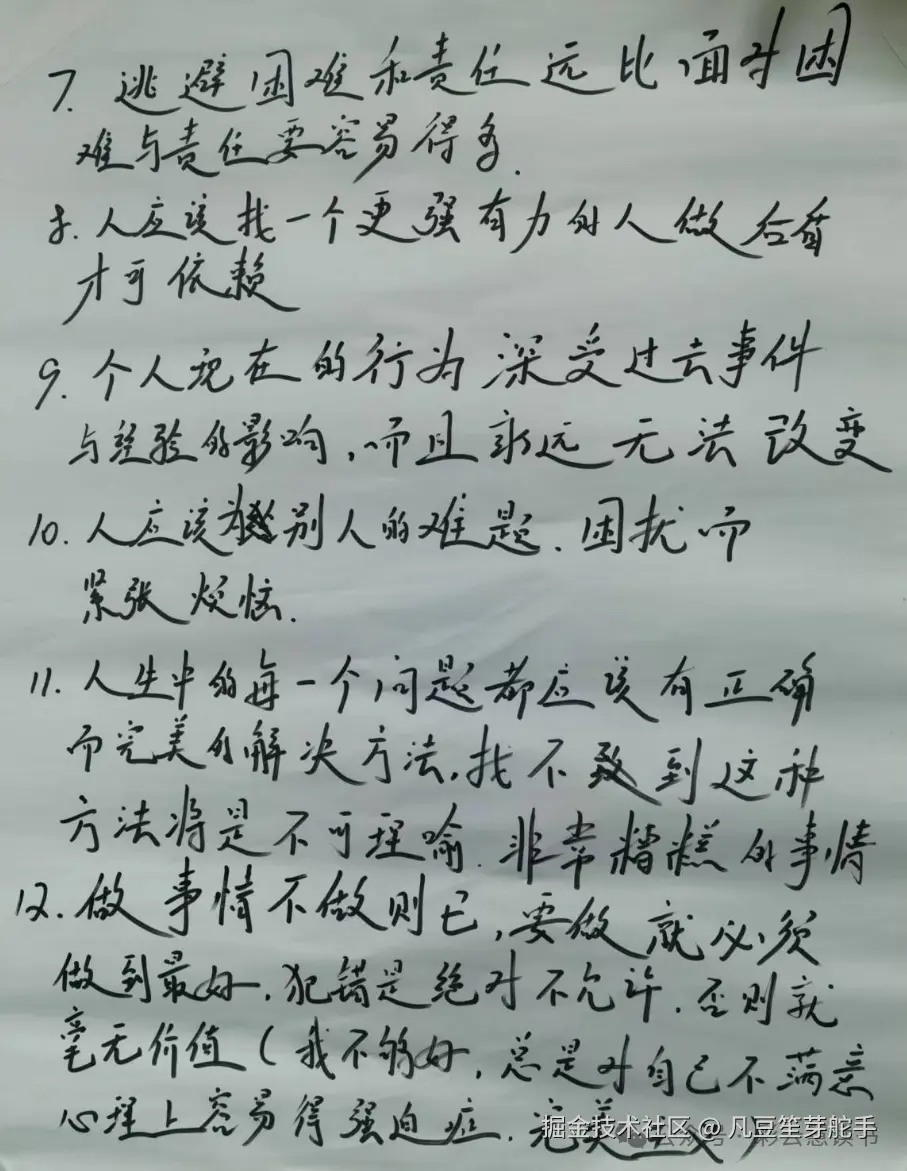 7. 逃避困难和责任远比面对困
难与责任要容易得多.
8. 人应该找一个更强有力的人做后盾
才可依赖
9. 个人现在的行为深受过去事件
与经验的影响,而且永远无法改变
10. 人应该为别人的难题.困扰而
紧张烦恼.
11. 人生中的每一个问题都应该有正确
而完美的解决方法,找不到这种
方法将是不可理喻.非常糟糕的事情
12. 做事情不做则已,要做就必须
做到最好.犯错是绝对不允许.否则就
毫无价值(我不够好,总是对自己不满意
心理上容易得强迫症.完美主义)
掘金技术社区 @ 凡豆笙芽舵手